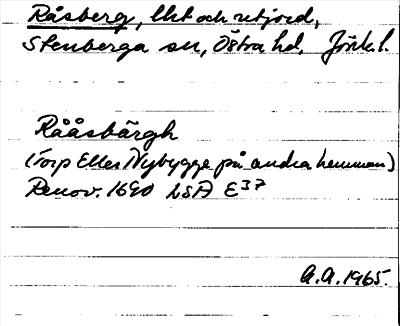 Råsberg, lht och utjord,
Stenberga sn, Östra hd, Jönk.l.
Rååsbärgh
(Torp Eller Nybygge på andra hemman)
Renov. 1690 LSA E37
A.A. 1965.